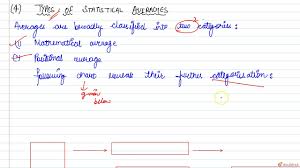 (4) TYPES OF STATISTICAL AVERAGES
Averages are broadly classified into two categories:
(i) Mathematical average
(ii) Positional average
following chart reveals their further categorisation:
given
below